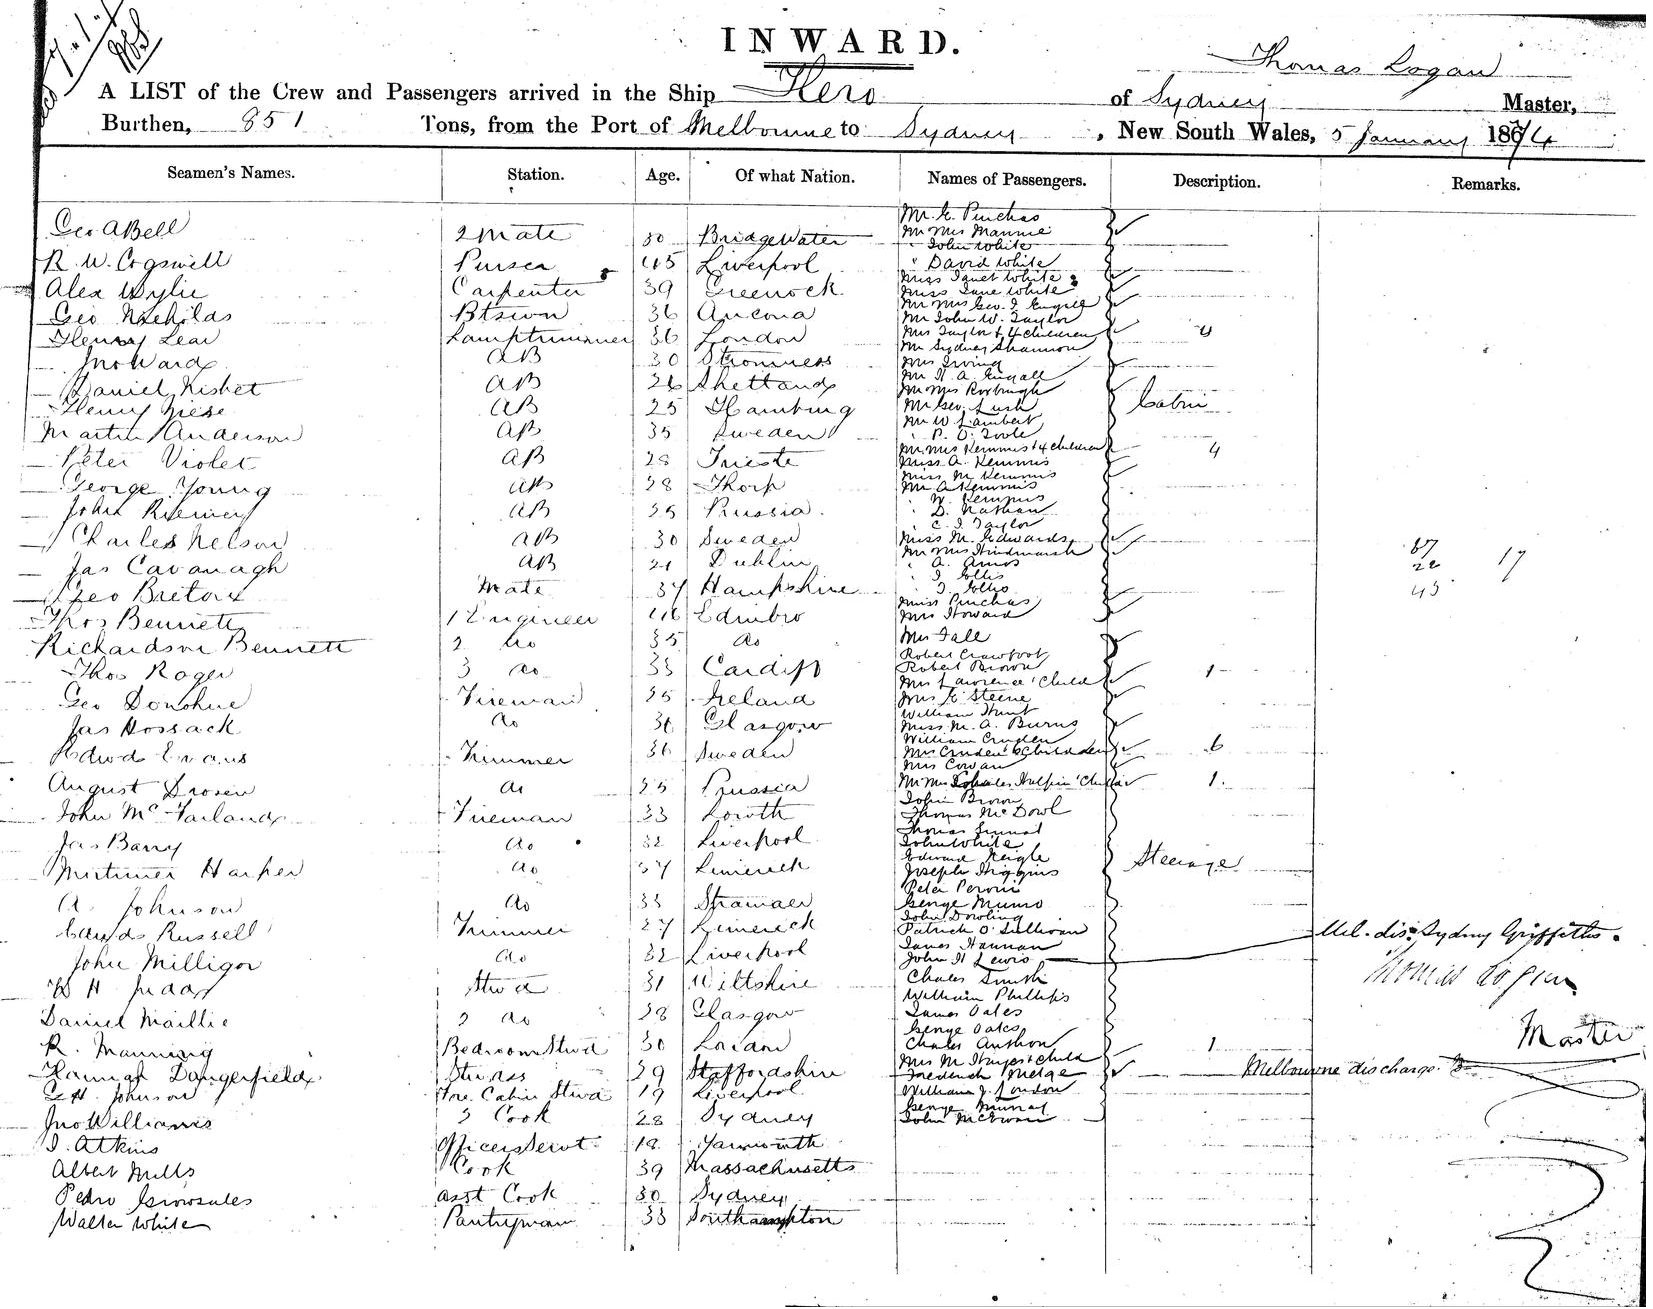 INWARD.
Thomas Logan
A LIST of the Crew and Passengers arrived in the Ship Hero of Sydney Master,
Burthen, 851 Tons, from the Port of Melbourne to Sydney, New South Wales, 5 January 1874
Seamen's Names. Station. Age. Of what Nation. Names of Passengers. Description. Remarks.
Geo A Bell 2 Mate 30 Bridgewater
R. W. Cogswell Purser 45 Liverpool
Alex Wylie Carpenter 39 Greenock
Geo Btswn 36 Ancona
Henry Lear Lamptrimmer 36 London
Jno Ward AB 30 Stromness
Daniel Nisbet AB 26 Shetland
Henry Niese AB 25 Hamburg
Martin Anderson AB 35 Sweden
Peter Violet AB 28 Trieste
George Young AB 28
John Riemer AB 25 Prussia
Charles Nelson AB 30 Sweden
Jas Cavanagh AB 21 Dublin
Geo Breton Mate 37 Hampshire
Thos Bennett 1 Engineer 46 Edinbro
Richardson Bennett 2 do 35 do
Thos Roger 3 do 33 Cardiff
Geo Donohue Fireman 25 Ireland
Jas Hossack do 36 Glasgow
Edwd Evans Trimmer 36 Sweden
August do 25 Prussia
John McFarland Fireman 33 Louth
Jas Barry do 32 Liverpool
Mortimer Harper do 37 Limerick
A. Johnson do 33 Stranraer
Russell Trimmer 27 Limerick
John Milligan do 32 Liverpool
Stwd 31 Wiltshire
Daniel Maillie 2 do 28 Glasgow
R. Manning Bedroom Stwd 30
Hannah Dangerfield Stwdss 29 Staffordshire
G. H. Johnson Fore Cabin Stwd 19 Liverpool
Jno Williams 3 Cook 28 Sydney
J. Atkins Officers Servt 18 Yarmouth
Albert Mills Cook 39 Massachusetts
Pedro asst Cook 30 Sydney
Walter White Pantryman 33 Southampton
Mr. E. Pinchas
Mr Mrs Mannie
" John White
" David White
Miss Janet White
Miss Jane White
Mr Mrs Geo. T.
Mr John W. Taylor
Mrs Taylor & 4 children 4
Mr Sydney Shannon
Mrs Irving
Mr H. A.
Mr Mrs Roxburgh
Mr Geo. Lush Cabin
Mr W. Lambert
" P. O. Toole
Mr Mrs Kemmis & 4 children 4
Miss A. Kemmis
Miss M. Kemmis
Mr A Kemmis
" W. Kemmis
" D. Nathan
" C. J. Taylor
Miss M. Edwards
Mr Mrs Hindmarsh
" A. Amos
" J. Jollis
" J. Jollis
Miss Pinchas
Mrs Howard
87
22
17
43
Mrs Tall
Robert Crawfoot
Robert Brown
Mrs Lawrence 1 Child 1
Mrs E Steene
William Hunt
Miss M. A. Burns
William Cruden
Mrs Cruden 6 Children 6
Mrs Cowan
Mr Mrs Halpin 1 Child 1.
John Brown
Thomas McDowl
Thomas
John White
Edward Keigle Steerage
Joseph Higgins
Peter Peroni
George Munro
John Dowling
Patrick O'Sullivan
James Hannan
John H Lewis Mel. dis. Sydney Griffiths.
Charles Smith
William Phillips
James Oates
George Oates
Charles Anthon
Mrs M. Hayes & Child 1
Frederick Melbourne discharge
William J. London
George Murray
John McEwan
Thomas Logan
Master